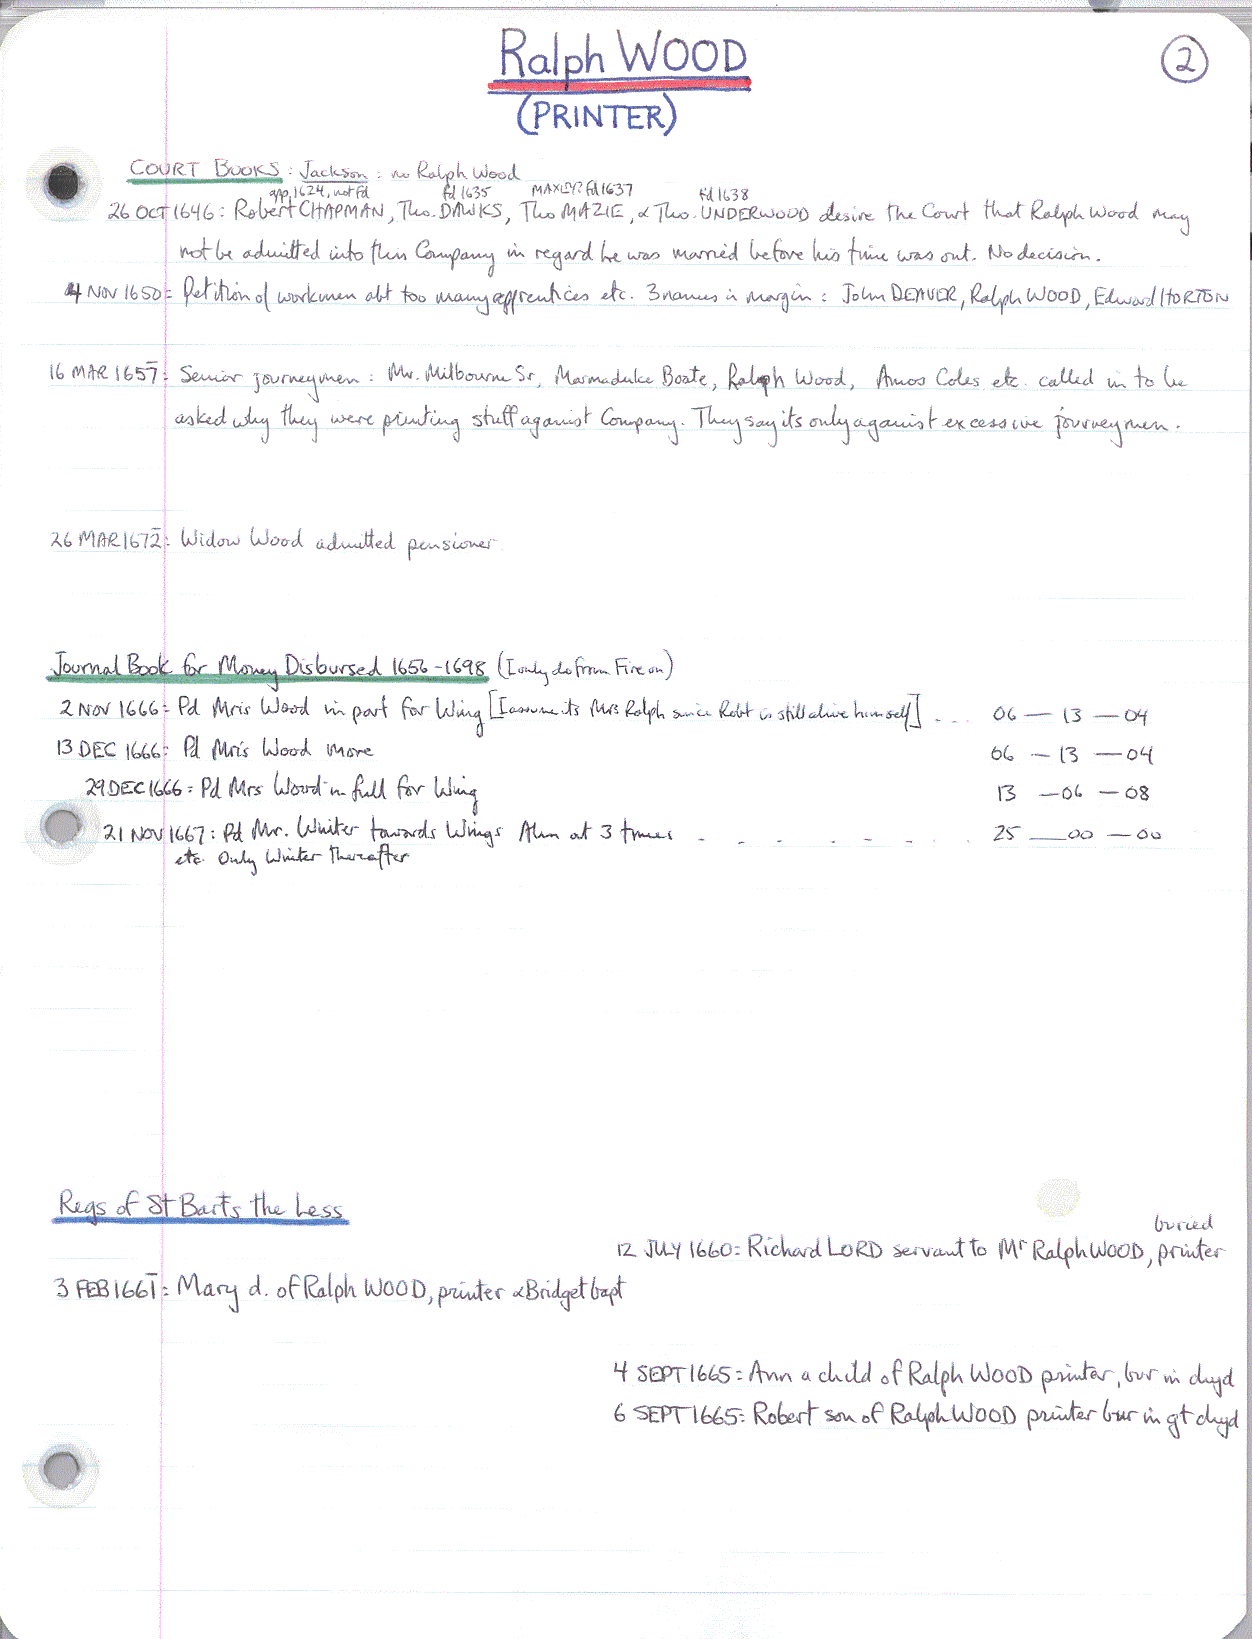 Ralph WOOD
2
(PRINTER)
COURT BOOKS : Jackson : no Ralph Wood
app. 1624, not fd fd 1635 MAXEY? fd 1637 fd 1638
26 OCT 1646 : Robert CHAPMAN, Tho. DAWKS, Tho MAZIE, & Tho. UNDERWOOD desire the Court that Ralph Wood may
not be admitted into this Company in regard he was married before his time was out. No decision.
4 NOV 1650 : Petition of workmen abt too many apprentices etc. 3 names in margin : John DEAVER, Ralph WOOD, Edward HORTON
16 MAR 1657 : Senior journeymen : Mr. Milbourne Sr, Marmaduke Boate, Ralph Wood, Amos Coles etc. called in to be
asked why they were printing stuff against Company. They say its only against excessive journeymen.
26 MAR 1672 : Widow Wood admitted pensioner
Journal Book for Money Disbursed 1656-1698 (I only do from Fire on)
2 NOV 1666 : Pd Mris Wood in part for Wing [I assume its Mrs Ralph since Robt is still alive himself] . ... 06 — 13 — 04
13 DEC 1666 : Pd Mris Wood more 06 — 13 — 04
29 DEC 1666 : Pd Mrs Wood in full for Wing 13 — 06 — 08
21 NOV 1667 : Pd Mr. Winter towards Wings Alm at 3 times 25 — 00 — 00
etc. Only Winter thereafter
Regs of St Barts the Less
buried
12 JULY 1660 : Richard LORD servant to Mr Ralph WOOD, printer
3 FEB 1661 : Mary d. of Ralph WOOD, printer & Bridget bapt
4 SEPT 1665 : Ann a child of Ralph WOOD printer, bur in chyd
6 SEPT 1665 : Robert son of Ralph WOOD printer bur in gt chyd